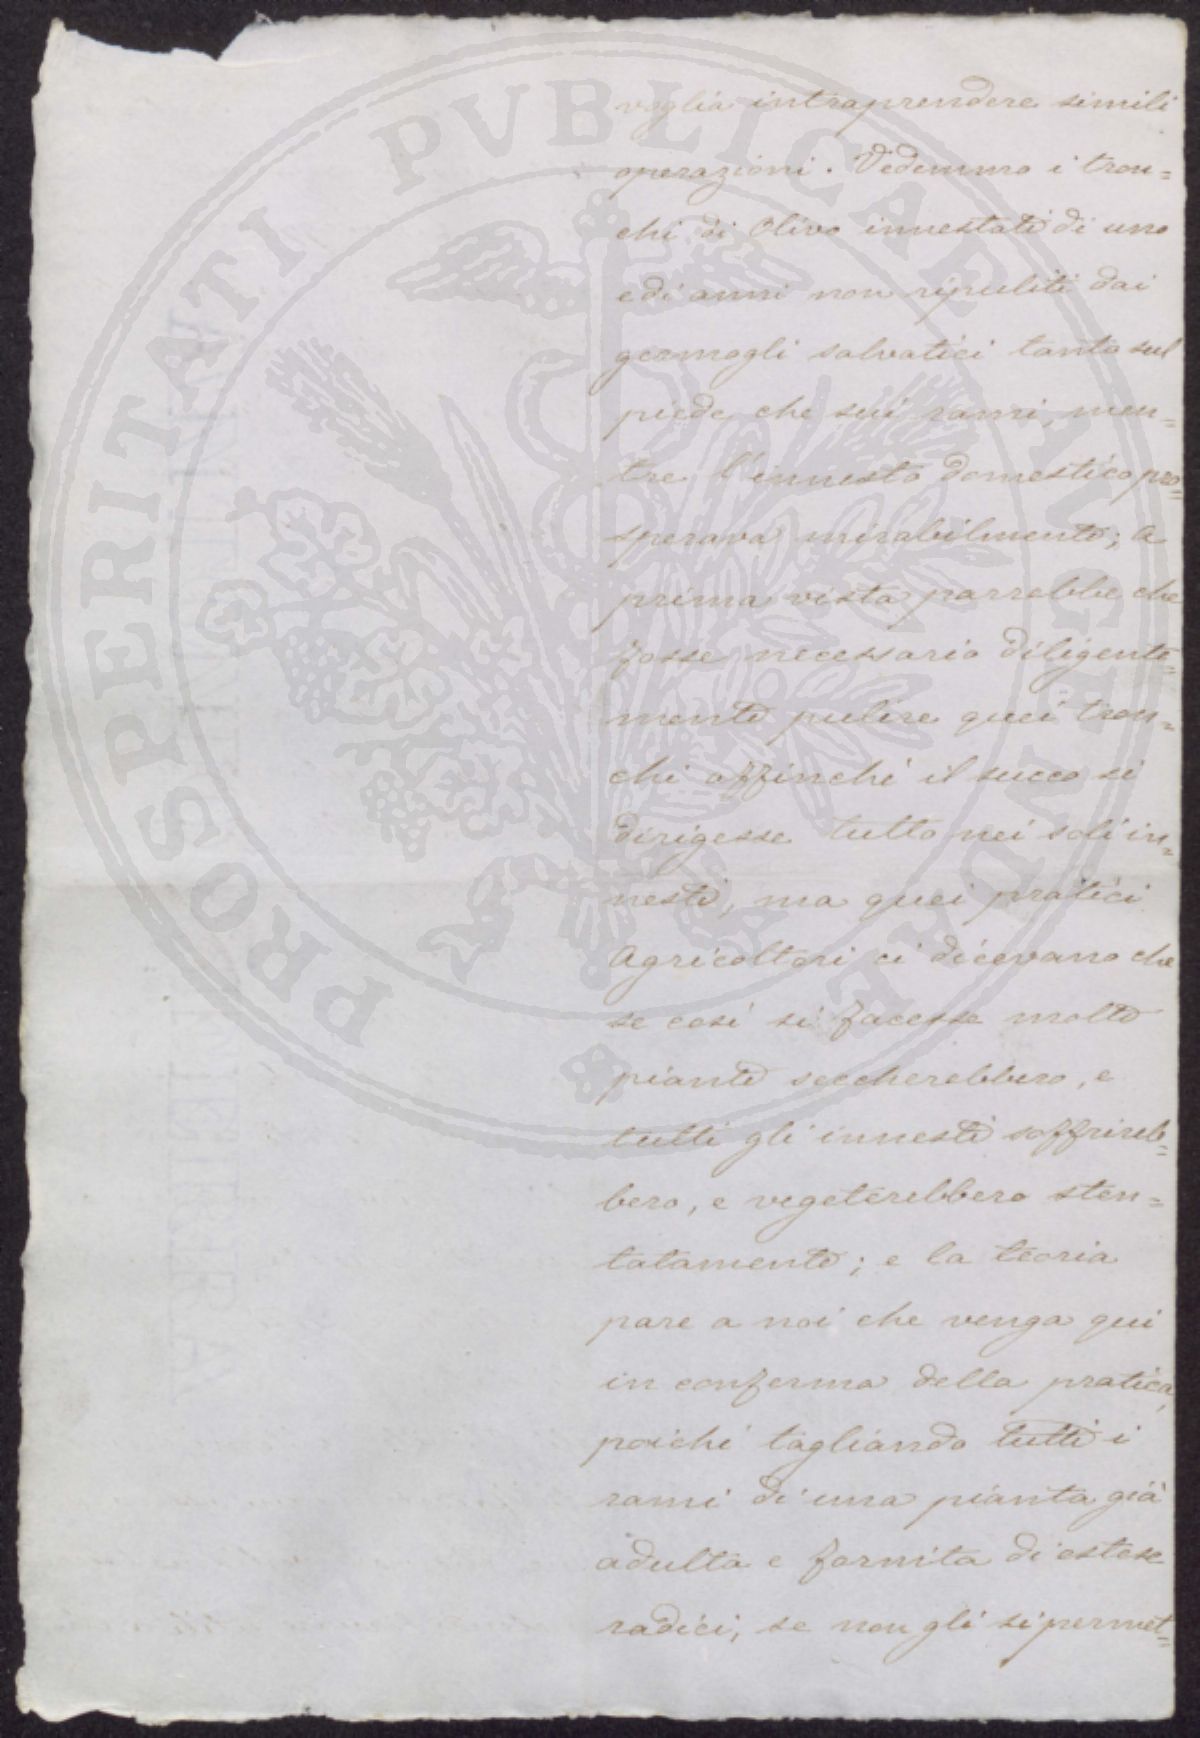 voglia intraprendere simili
operazioni. Vedemmo i tron=
chi di Olivo innestati di uno
e di anni non ripuliti dai
germogli salvatici tanto sul
piede che sui rami, men=
tre l'innesto domestico pro=
sperava mirabilmente; a
prima vista parrebbe che
fosse necessario diligente=
mente pulire quei tron=
chi affinché il succo si
dirigesse tutto nei soli in=
nesti, ma quei pratici
Agricoltori ci dicevano che
se così si facesse molte
piante seccherebbero, e
tutti gli innesti soffrireb=
bero, e vegeterebbero sten=
tatamente; e la teoria
pare a noi che venga qui
in conferma della pratica,
poiché tagliando tutti i
rami di una pianta già
adulta e fornita di estese
radici, se non gli si permet=
PROSPERITATI PVBLICAE AVGENDAE